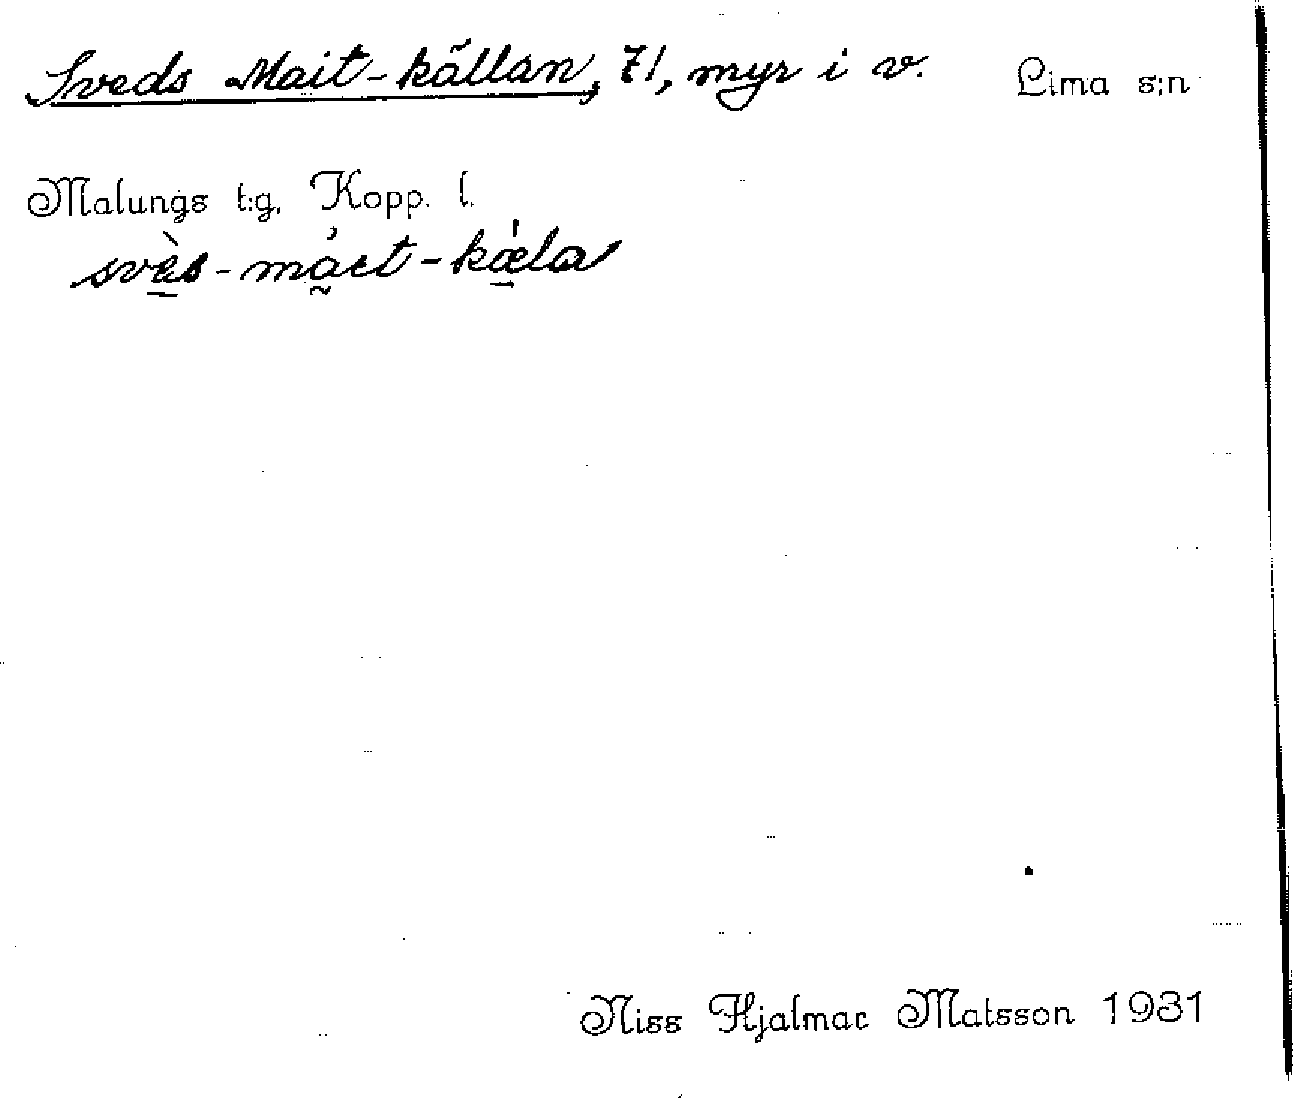 Sveds Mait-källan, 71, myr i v. Lima s:n
Malungs t:g, Kopp. l.
svès-máet-kǽla
Niss Hjalmar Matsson 1931